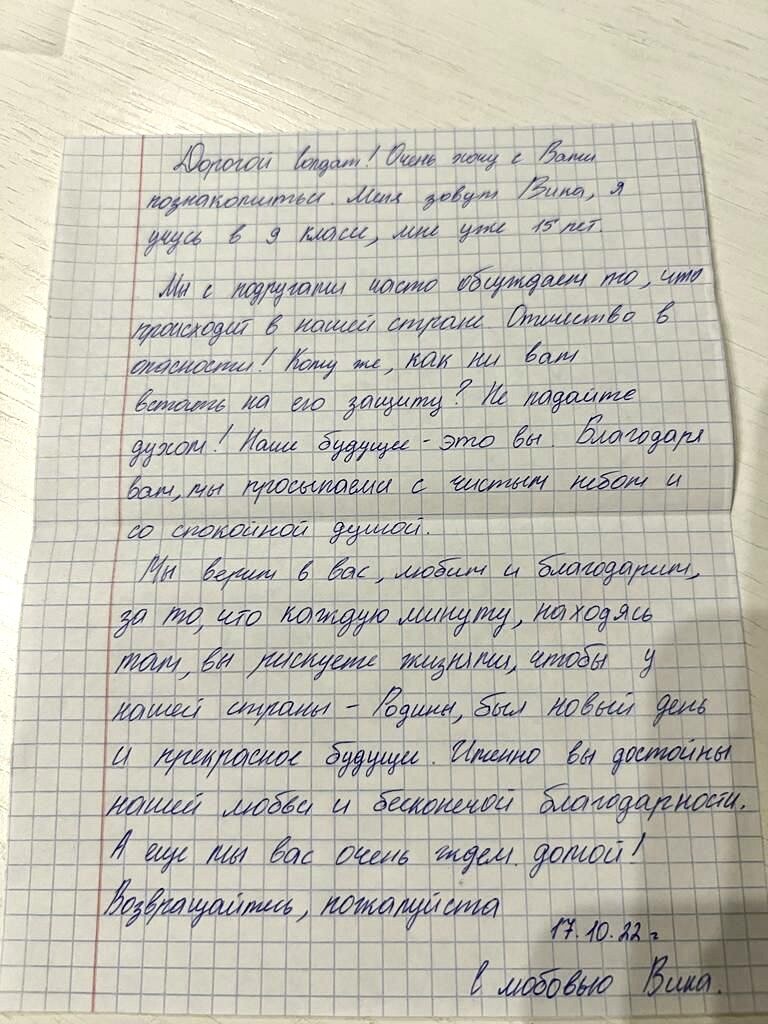 Дорогой солдат! Очень хочу с Вами
познакомиться. Меня зовут Вика, я
учусь в 9 класе, мне уже 15 лет.
Мы с подругами часто обсуждаем то, что
происходит в нашей стране. Отечество в
опасности! Кому же, как ни вам
встать на его защиту? Не падайте
духом! Наше будущее - это вы. Благодаря
вам, мы просыпаемся с чистым небом и
со спокойной душой.
Мы верим в вас, любим и благодарим,
за то, что каждую минуту, находясь
там, вы рискуете жизнями, чтобы у
нашей страны - Родины, был новый день
и прекрасное будущее. Именно вы достойны
нашей любви и бесконечой благодарности.
А еще мы вас очень ждем домой!
Возвращайтесь, пожалуйста
17.10.22 г
С любовью Вика.